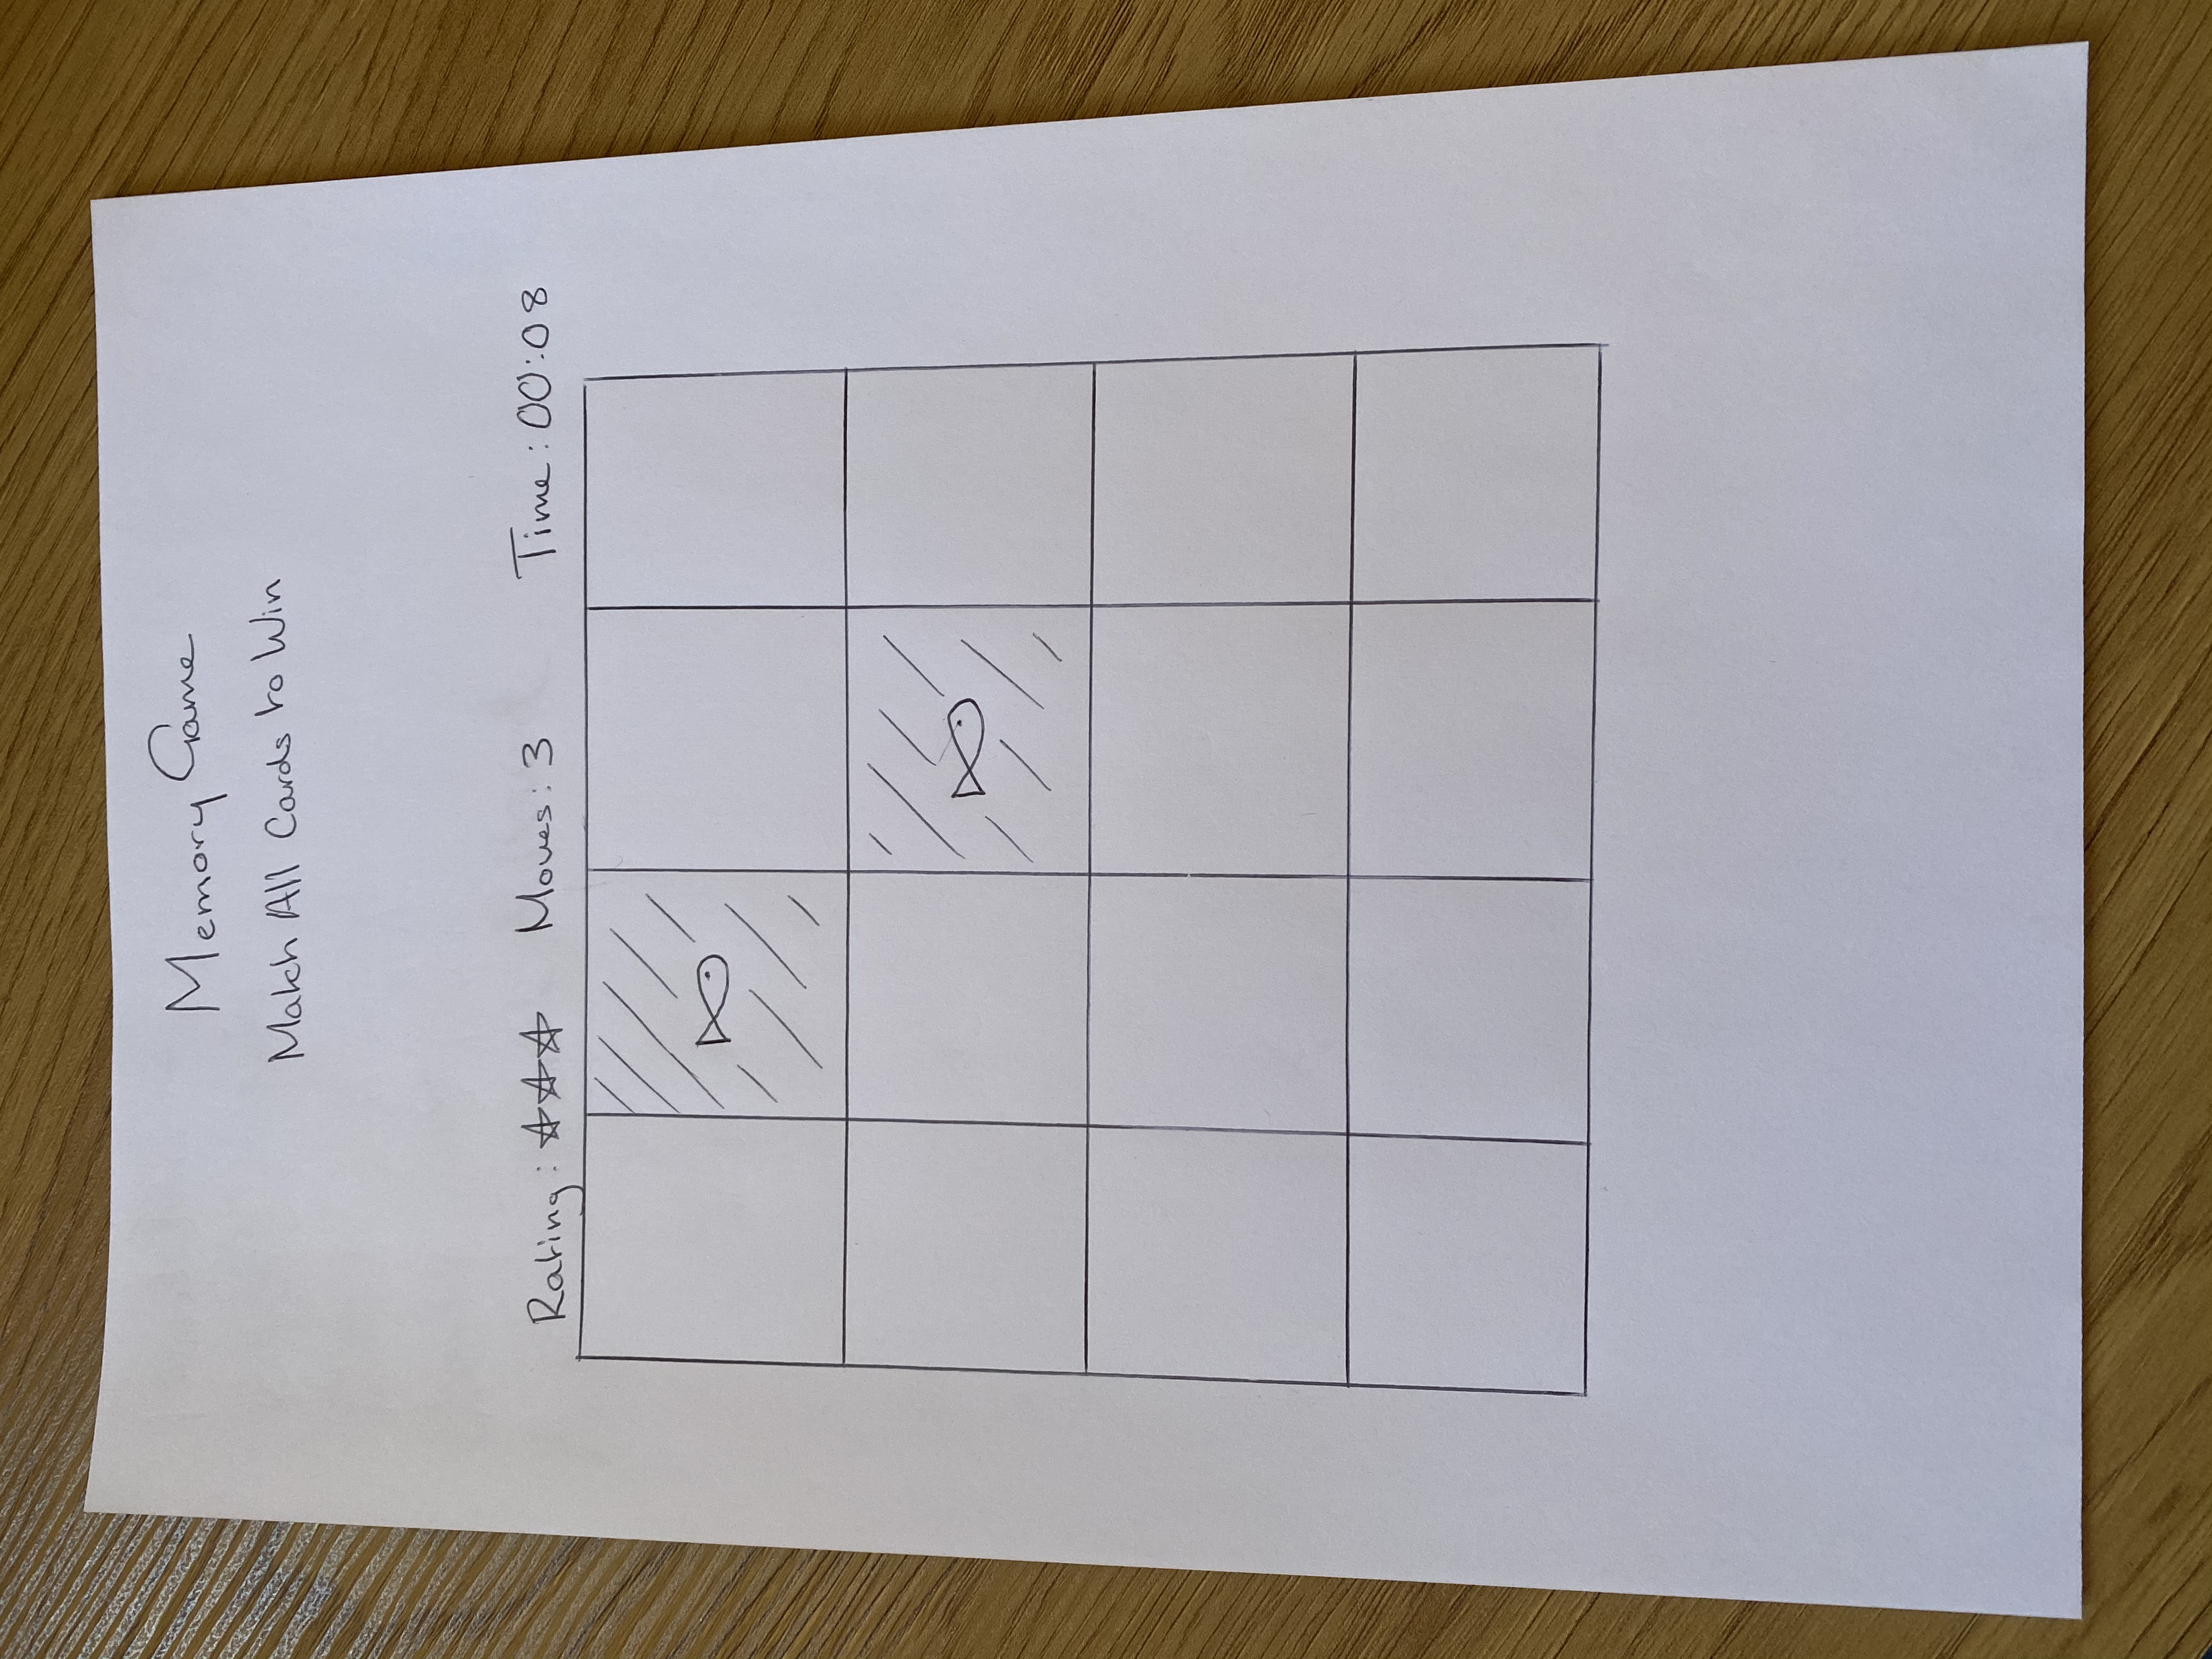 Memory Game
Match All Cards to Win
Rating: ☆☆☆ Moves: 3 Time: 00:08